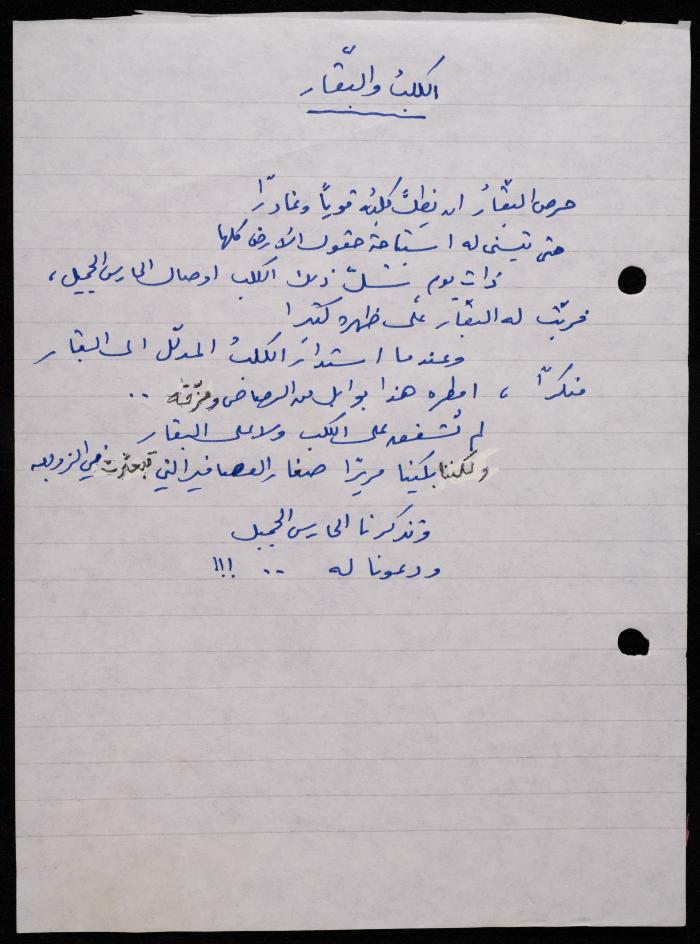 الكلبُ والبقّار
حرص البقّارُ ان يظلّ كلبُه قوياً وغادرًا
حتى يتسنى له استباحة حقول الأرض كلها
ذات يوم شلّ ذلك الكلب اوصال الحارس الجميل ،
فربّت له البقّار على ظهره كثيرا
وعندما استدار الكلبُ المدلّل الى البقار
منكرًا ، امطره هذا بوابل من الرصاص ومزّقه ..
لم نُشفق على الكلب ولا على البقار
ولكننا بكينا مريرًا صغار العصافير التي تبعثرت في الزوبعه
وتذكرنا الحارس الجميل
ودعونا له .. !!!